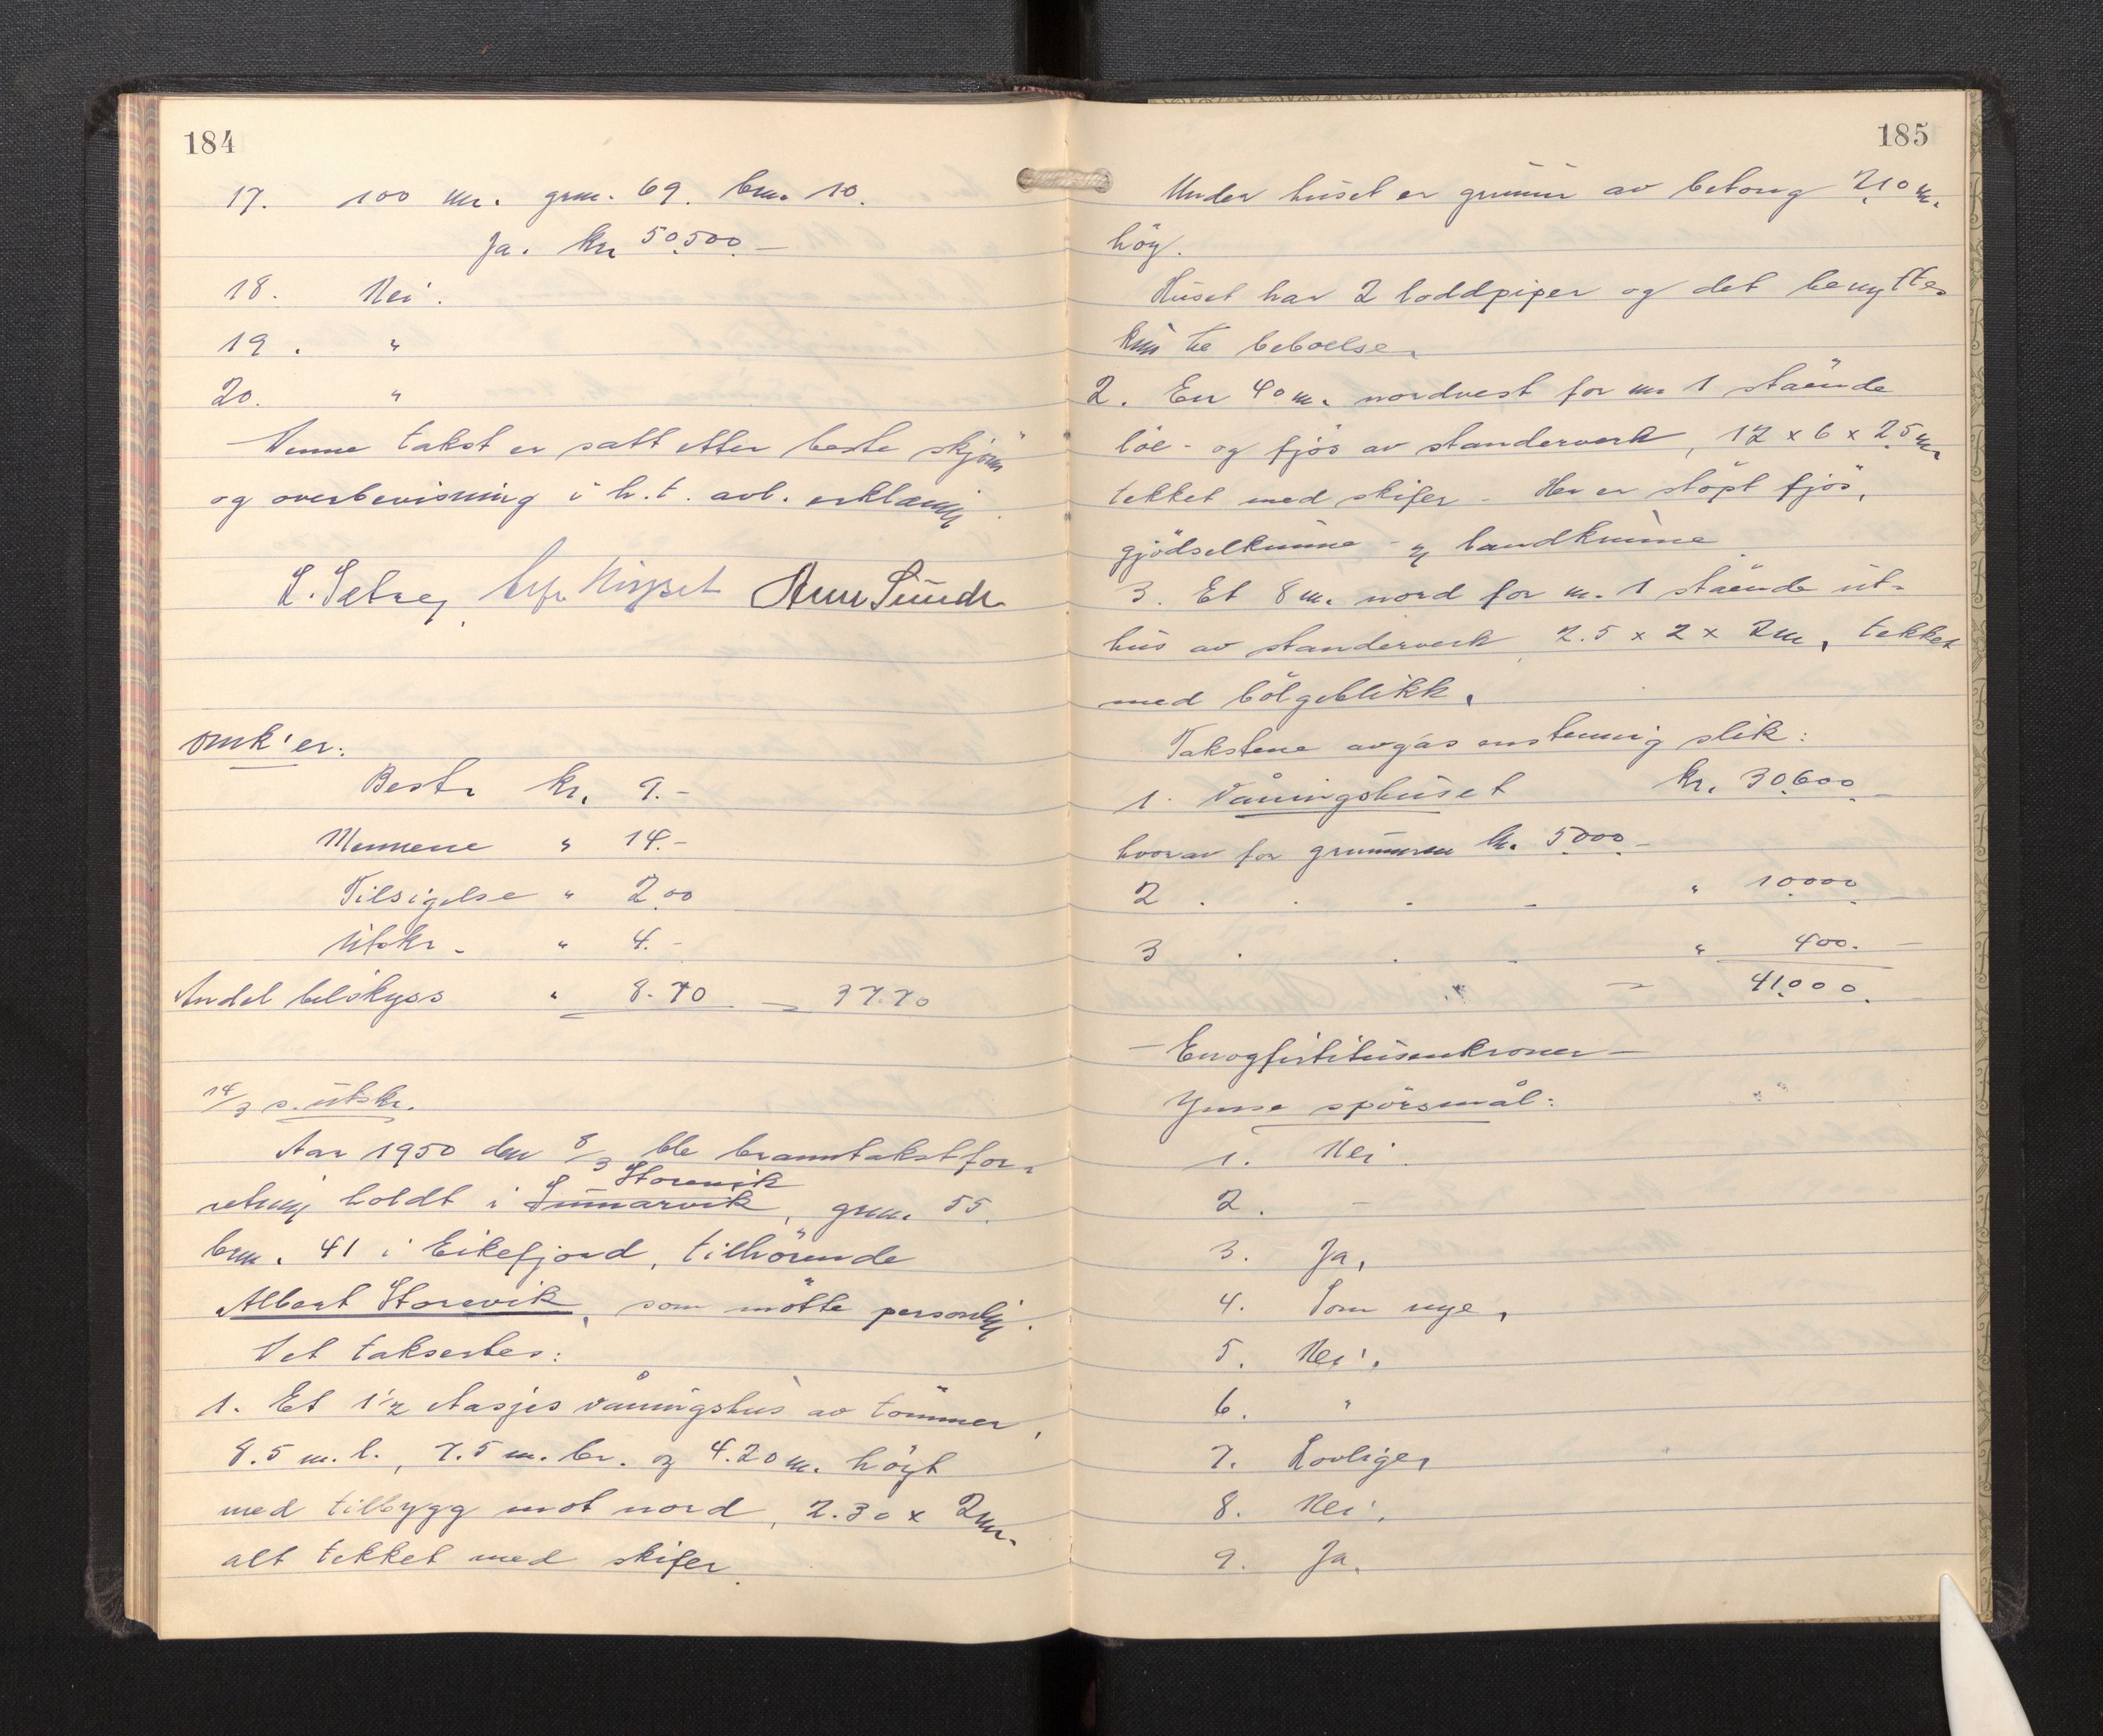 184
17. 100 m. grn. 69. brn. 10.
Ja. kr 50.500.-
18. Nei.
19. "
20. "
Denne takst er satt etter beste skjönn
og overbevisning i h.t. avl. erklæring.
L. Sætre,
Omk'er:
Best. kr. 9.-
Mennene " 14.-
Tilsigelse " 2.00
Utskr. " 4.-
Andel bilskyss " 8.70 = 37.70
14/3 s. utskr.
Aar 1950 den 8/3 ble branntakstfor-
retning holdt i Sunnarvik Storevik, grn. 55.
brn. 41 i Eikefjord, tilhörende
Albert Storevik, som mötte personlig.
Det takseres:
1. Et 1½ etasjes våningshus av tömmer,
8.5 m. l., 7.5 m. br. og 4.20 m. höyt
med tilbygg mot nord, 2.30 x 2 m.
alt tekket med skifer.
185
Under huset er grunnur av betong 2.10 m.
höy.
Huset har 2 loddpiper og det benyttes
kun til beboelse.
2. En 40 m. nordvest for nr 1 stående
löe- og fjös av standerverk, 12 x 6 x 2.5 m.
tekket med skifer - Her er stöpt fjös,
gjödselkumme - og landkumme.
3. Et 8 m. nord for nr. 1 stående ut-
hus av standerverk 2.5 x 2 x 2 m, tekket
med bölgeblikk.
Takstene avgås enstemmig slik:
1. Våningshuset kr. 30.600.-
hvorav for grunnuren kr. 5.000.-
2 . . . - " 10.000.-
3 . . . " 400.-
= 41.000.-
- Enogfirtitusenkroner -
Ymse spörsmål:
1. Nei.
2. -
3. Ja.
4. Som nye.
5. Nei.
6. "
7. Lovlige,
8. Nei.
9. Ja.